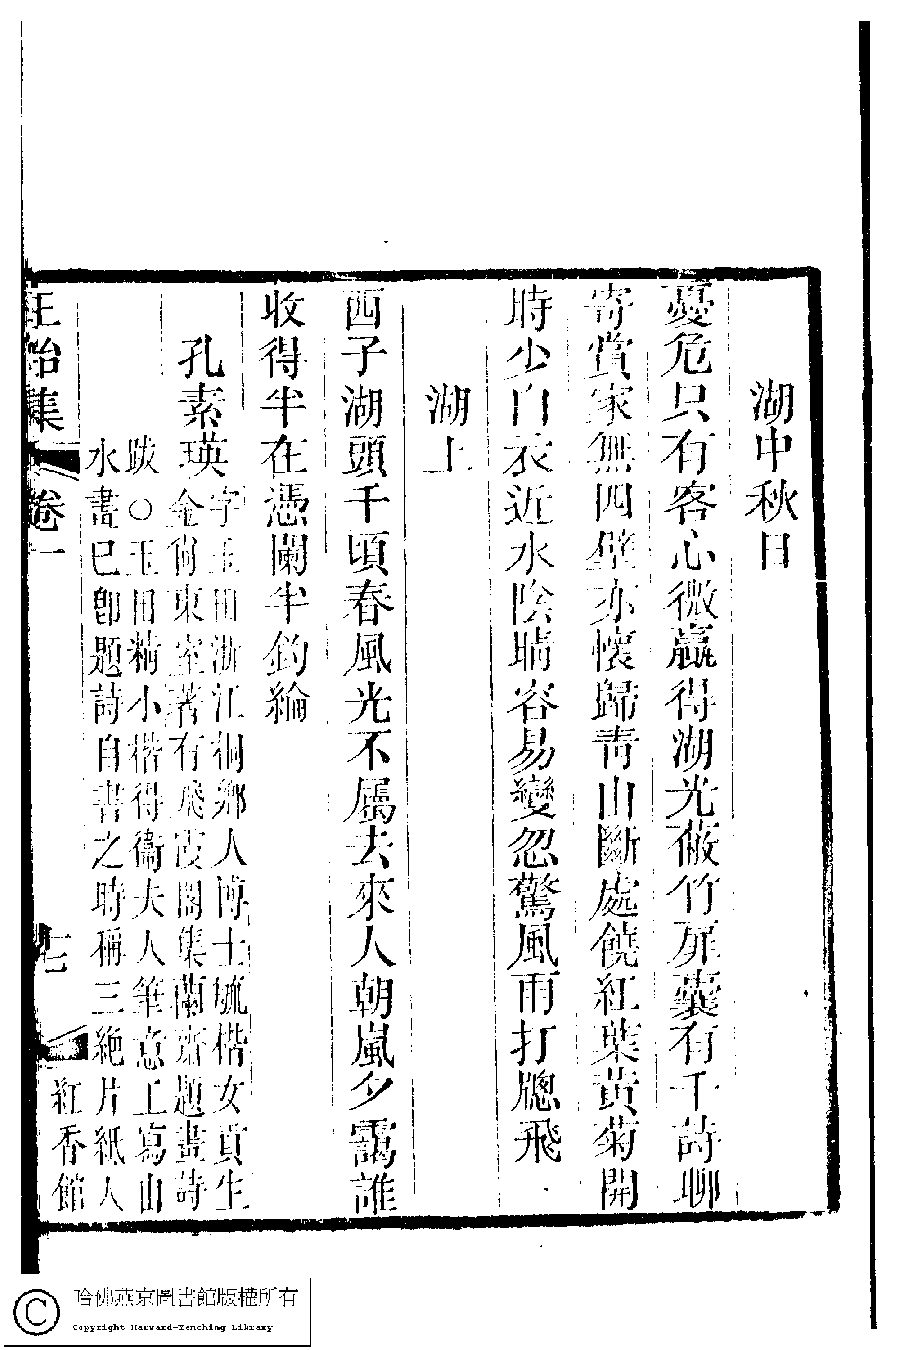 湖中秋日
憂危只有客心微贏得湖光蔽竹扉囊有千詩聊
寄賞家無四壁亦懷歸靑山斷處饒紅葉黃菊開
時少白衣近水陰晴容易變忽驚風雨打牕飛
湖上
西子湖頭千頃春風光不屬去來人朝嵐夕靄誰
收得半在憑闌半釣綸
孔素瑛
字玉田浙江桐鄉人博士毓楷女貢生
金尙東室著有飛霞閣集蘭齋題畫詩
跋○玉田精小楷得衞夫人筆意工寫山
水畫已卽題詩自書之時稱三絶片紙人
正始集 卷一 七 紅香館
哈佛燕京圖書館版權所有
Copyright Harvard-Yenching Library